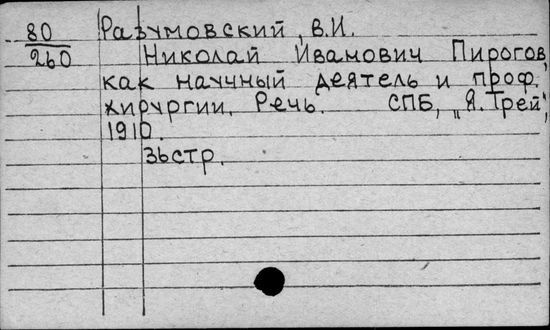 80 Разумовский, В.И.
260 Николай Иванович Пирогов,
как научный деятель и проф.
хирургии. Речь. СПБ, „Я. Трей",
1910.
36стр.